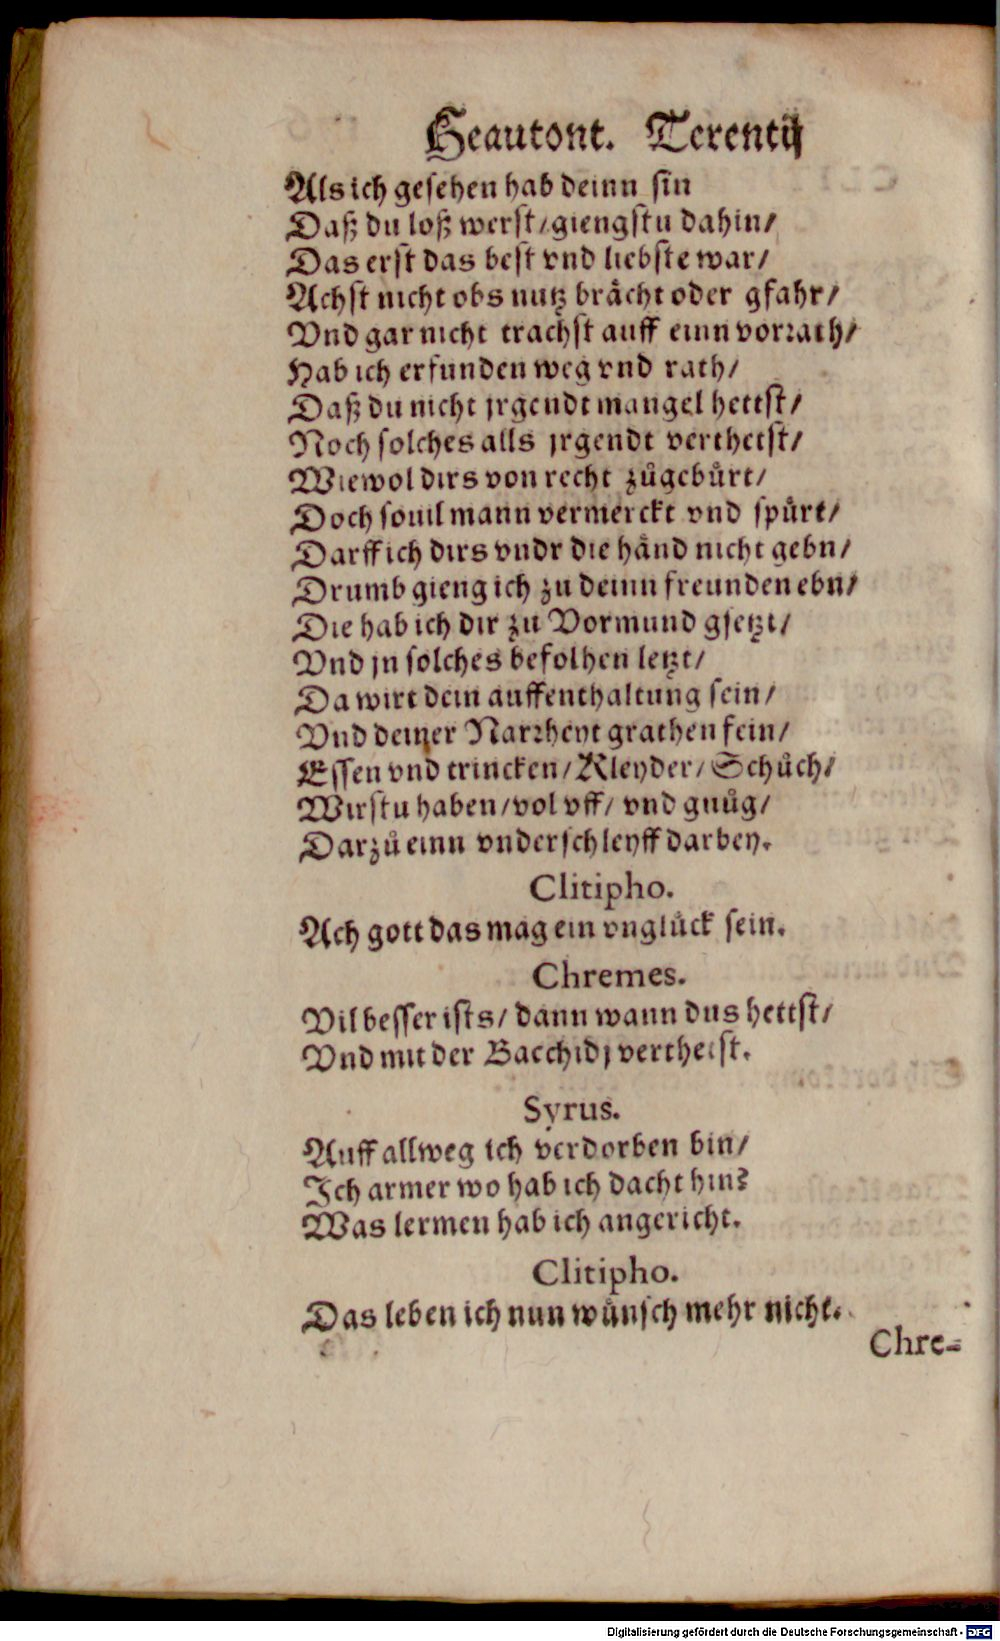 Heautont. Terentij
Als ich gesehen hab deinn sin
Daß du loß werst/giengstu dahin/
Das erst das best vnd liebste war/
Achst nicht obs nutz brächt oder gfahr/
Vnd gar nicht trachst auff einn vorrath/
Hab ich erfunden weg vnd rath/
Daß du nicht jrgendt mangel hettst/
Noch solches alls jrgendt verthetst/
Wiewol dirs von recht zůgebůrt/
Doch souil mann vermerckt vnd spůrt/
Darff ich dirs vndr die hånd nicht gebn/
Drumb gieng ich zu deinn freunden ebn/
Die hab ich dir zu Vormund gsetzt/
Vnd jn solches befolhen letzt/
Da wirt dein auffenthaltung sein/
Vnd deiner Narrheyt grathen fein/
Essen vnd trincken/Kleyder/Schůch/
Wirstu haben/vol vff/vnd gnůg/
Darzů einn vnderschleyff darbey.
Clitipho.
Ach gott das mag ein vnglůck sein.
Chremes.
Vil besser ists/dann wann dus hettst/
Vnd mit der Bacchidj verthetst.
Syrus.
Auff allweg ich verdorben bin/
Ich armer wo hab ich dacht hin?
Was lermen hab ich angericht.
Clitipho.
Das leben ich nun wůnsch mehr nicht.
Chre-
Digitalisierung gefördert durch die Deutsche Forschungsgemeinschaft - DFG